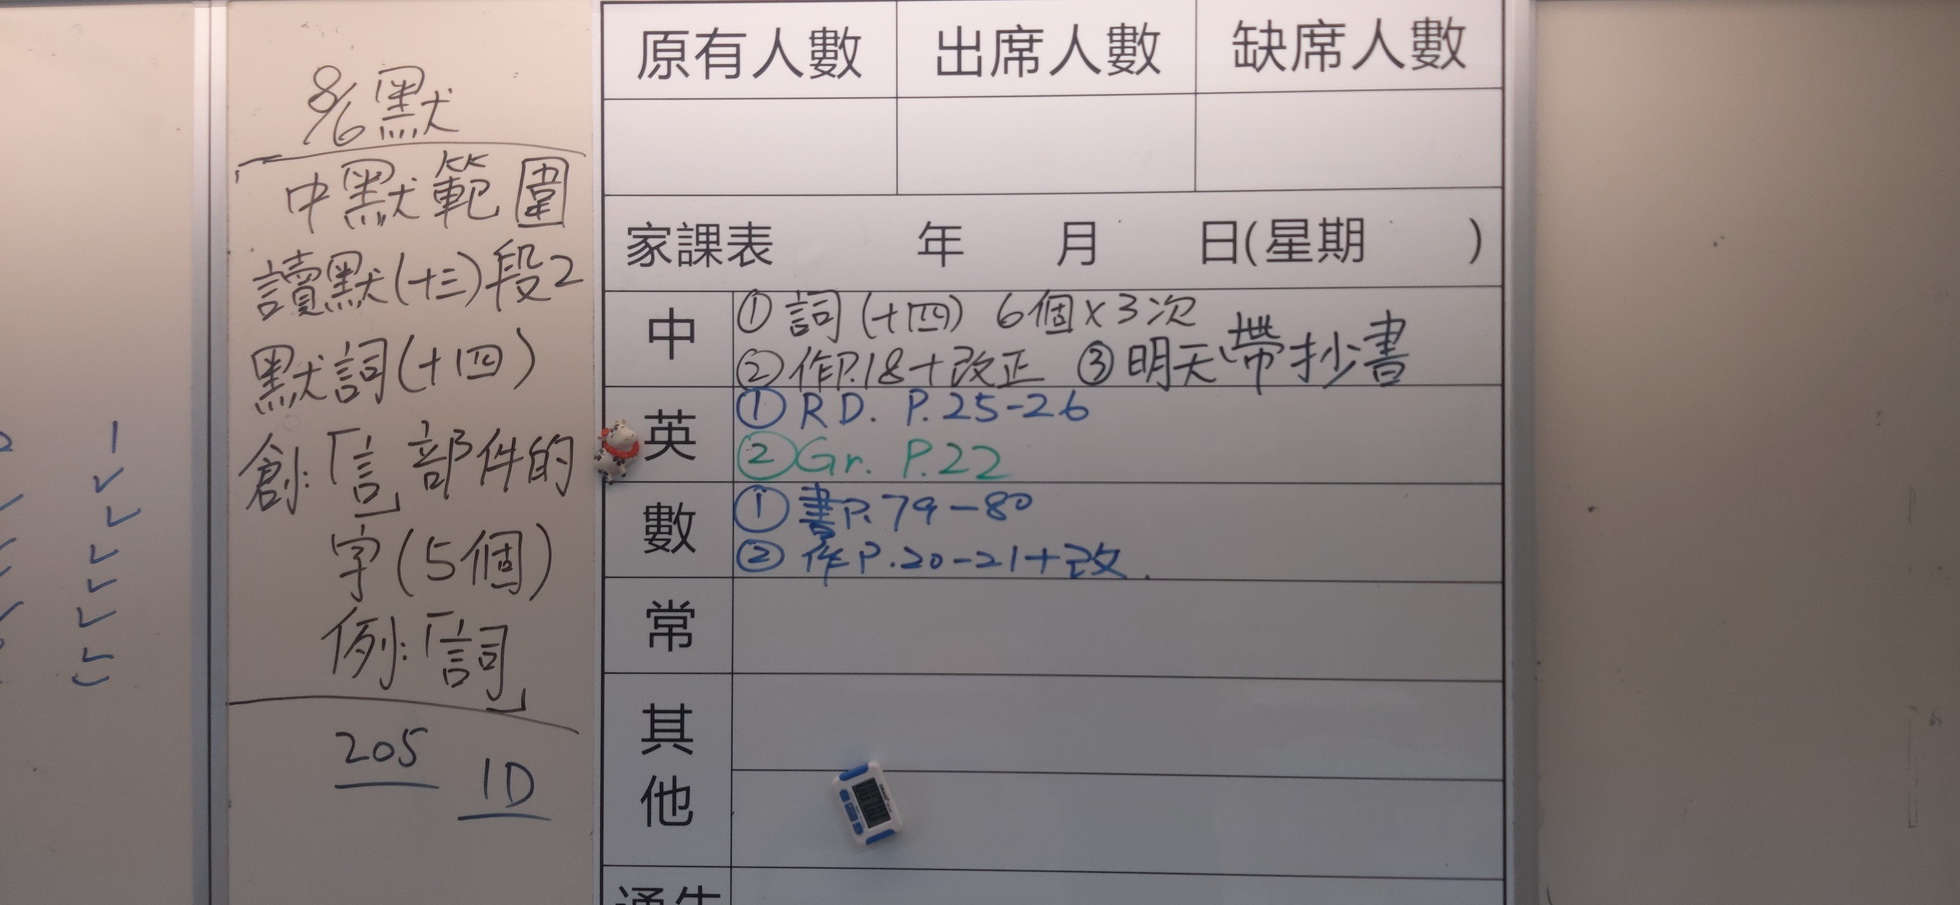 8/6默
中默範圍
讀默(十三)段2
默詞(十四)
創:「言」部件的
字(5個)
例:「詞」
205
1D
原有人數 出席人數 缺席人數
家課表 年 月 日(星期 )
中 ① 詞(十四) 6個×3次
② 作P.18+改正 ③ 明天帶抄書
英 ① RD. P.25-26
② Gr. P.22
數 ① 書P.79-80
② 作P.20-21+改.
常
其他
1